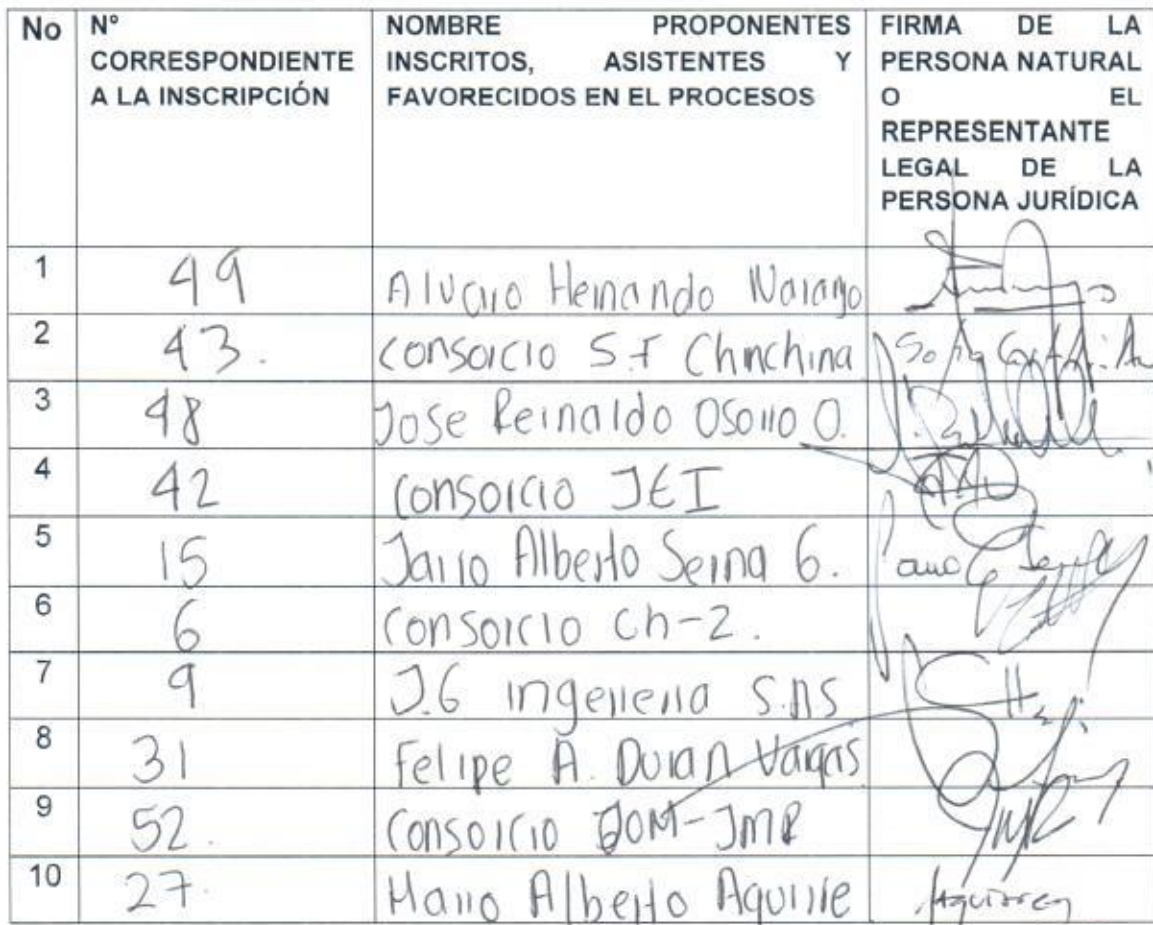 No
N°
CORRESPONDIENTE
A LA INSCRIPCIÓN
NOMBRE PROPONENTES
INSCRITOS, ASISTENTES Y
FAVORECIDOS EN EL PROCESOS
FIRMA DE LA
PERSONA NATURAL
O EL
REPRESENTANTE
LEGAL DE LA
PERSONA JURÍDICA
1 49 Alvaro Hernando Naranjo
2 43. consorcio S.F Chinchina
3 48 Jose Reinaldo Osorio O.
4 42 consorcio JEI
5 15 Jairo Alberto Serna G.
6 6 consorcio Ch-2.
7 9 J.G ingenieria S.AS
8 31 Felipe A. Duran Vargas
9 52. consorcio JOM-JMR
10 27. Mario Alberto Aguirre